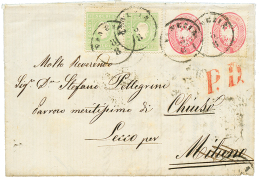 Molto Reverendo
Sig.r Dn Stefano Pellegrini
Parroco meritissimo di Chiuso
Lecco per
Milano
P.D.